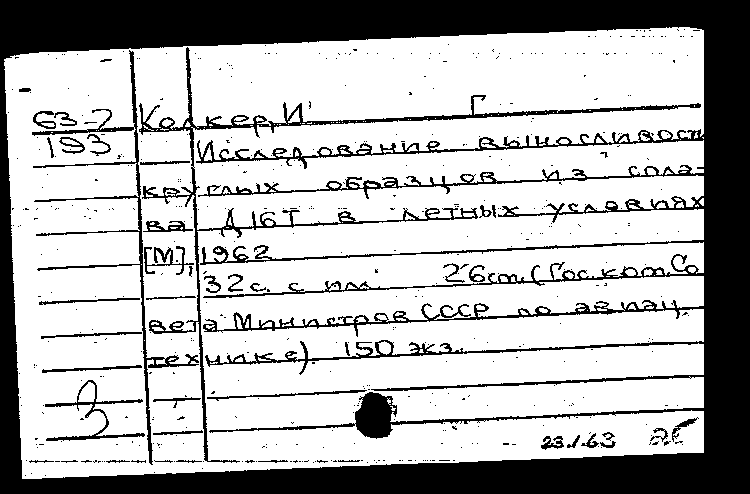 63-7 Колкер, И Г
193 Исследование выносливости
круглых образцов из спла-
ва Д16Т в летных условиях
[М], 1962
32с. с ил. 26см. (Гос. ком. Со
вета Министров СССР по авиац.
технике). 150 экз.
3
23.1.63